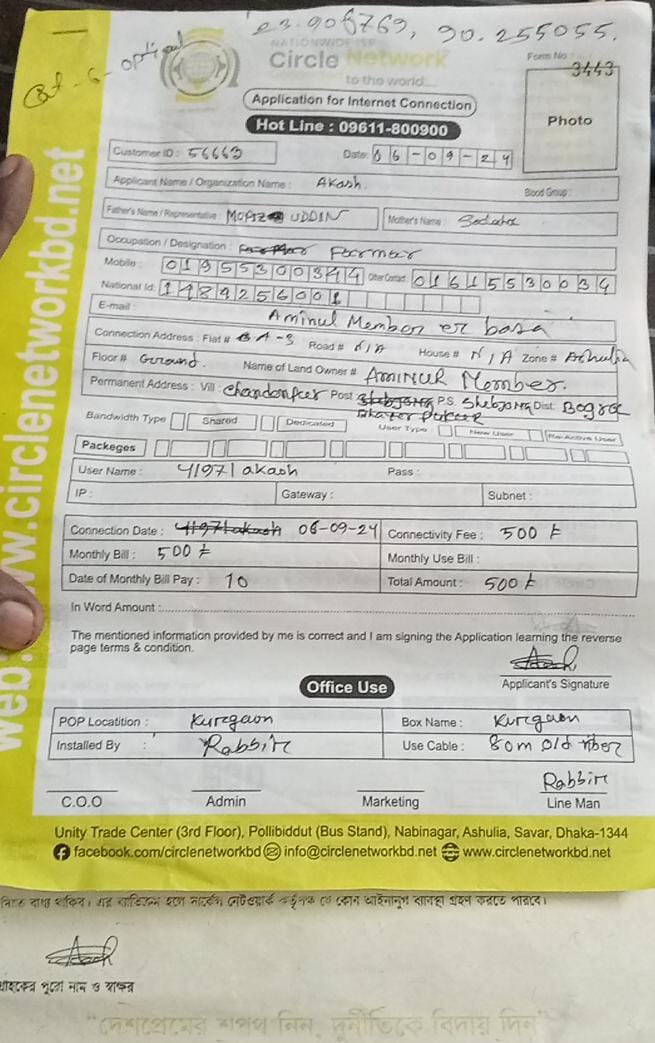 23.905769, 90.255055.
NATIONWIDE ISP
Circle Network
to the world...
Form No :
3443
Application for Internet Connection
Photo
Hot Line : 09611-800900
Customer ID : 56663
Date: 06-09-24
Applicant Name / Organization Name : Akash
Blood Group :
Father's Name / Representative : UDDIN
Mother's Name :
Occupation / Designation : Farmar
Mobile : 01955300344 Other Contact : 01615530034
National Id:
E-mail :
Aminul Member er basa
Connection Address : Flat # BA-3 Road # N/A House # N/A Zone # Ashulia
Floor # Ground. Name of Land Owner # AMINUR Member.
Permanent Address : Vill : Post P.S. Dist: Bogra
Bandwidth Type Shared Dedicated User Type New User Re-Active User
Packeges
User Name : 41971akash Pass :
IP : Gateway : Subnet :
Connection Date : 41971akash 06-09-24 Connectivity Fee : 500 ৳
Monthly Bill : 500 ৳ Monthly Use Bill :
Date of Monthly Bill Pay : 10 Total Amount : 500 ৳
In Word Amount :
The mentioned information provided by me is correct and I am signing the Application learning the reverse
page terms & condition.
Applicant's Signature
Office Use
POP Locatition : Kurgaon Box Name : Kurgaon
Installed By : Rabbir Use Cable : 80m old fiber
Rabbir
C.O.O Admin Marketing Line Man
Unity Trade Center (3rd Floor), Pollibiddut (Bus Stand), Nabinagar, Ashulia, Savar, Dhaka-1344
facebook.com/circlenetworkbd info@circlenetworkbd.net www.circlenetworkbd.net
web: www.circlenetworkbd.net
গ্রাহকের পুরো নাম ও স্বাক্ষর
"দেশপ্রেমের শপথ নিন, দুর্নীতিকে বিদায় দিন"